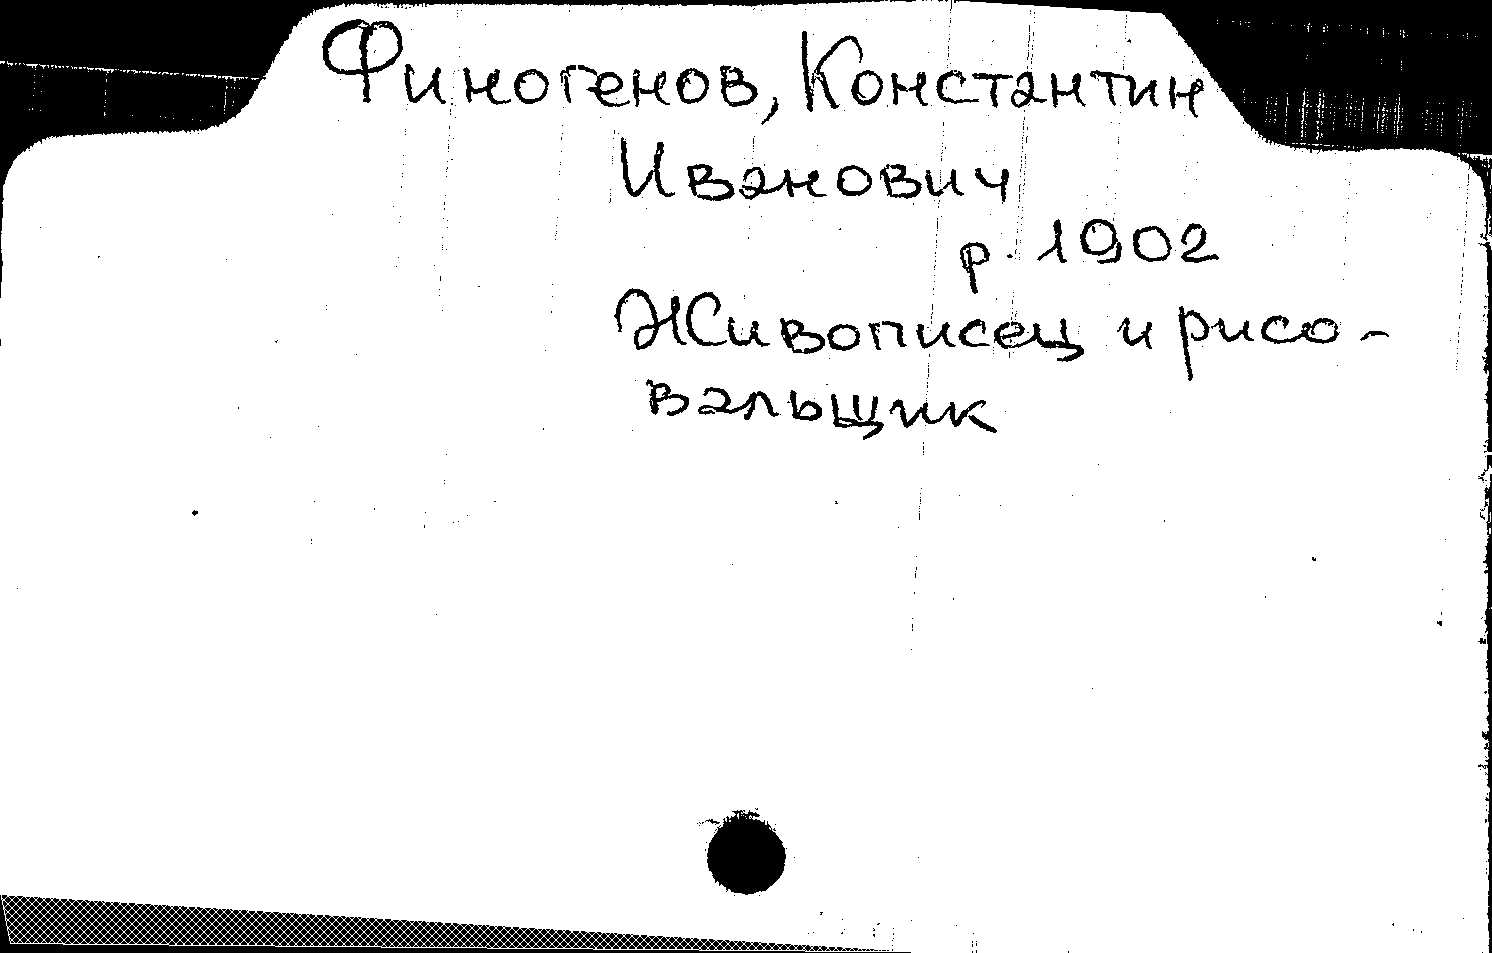 Финогенов, Константин
Иванович
р. 1902
Живописец и рисо-
вальщик